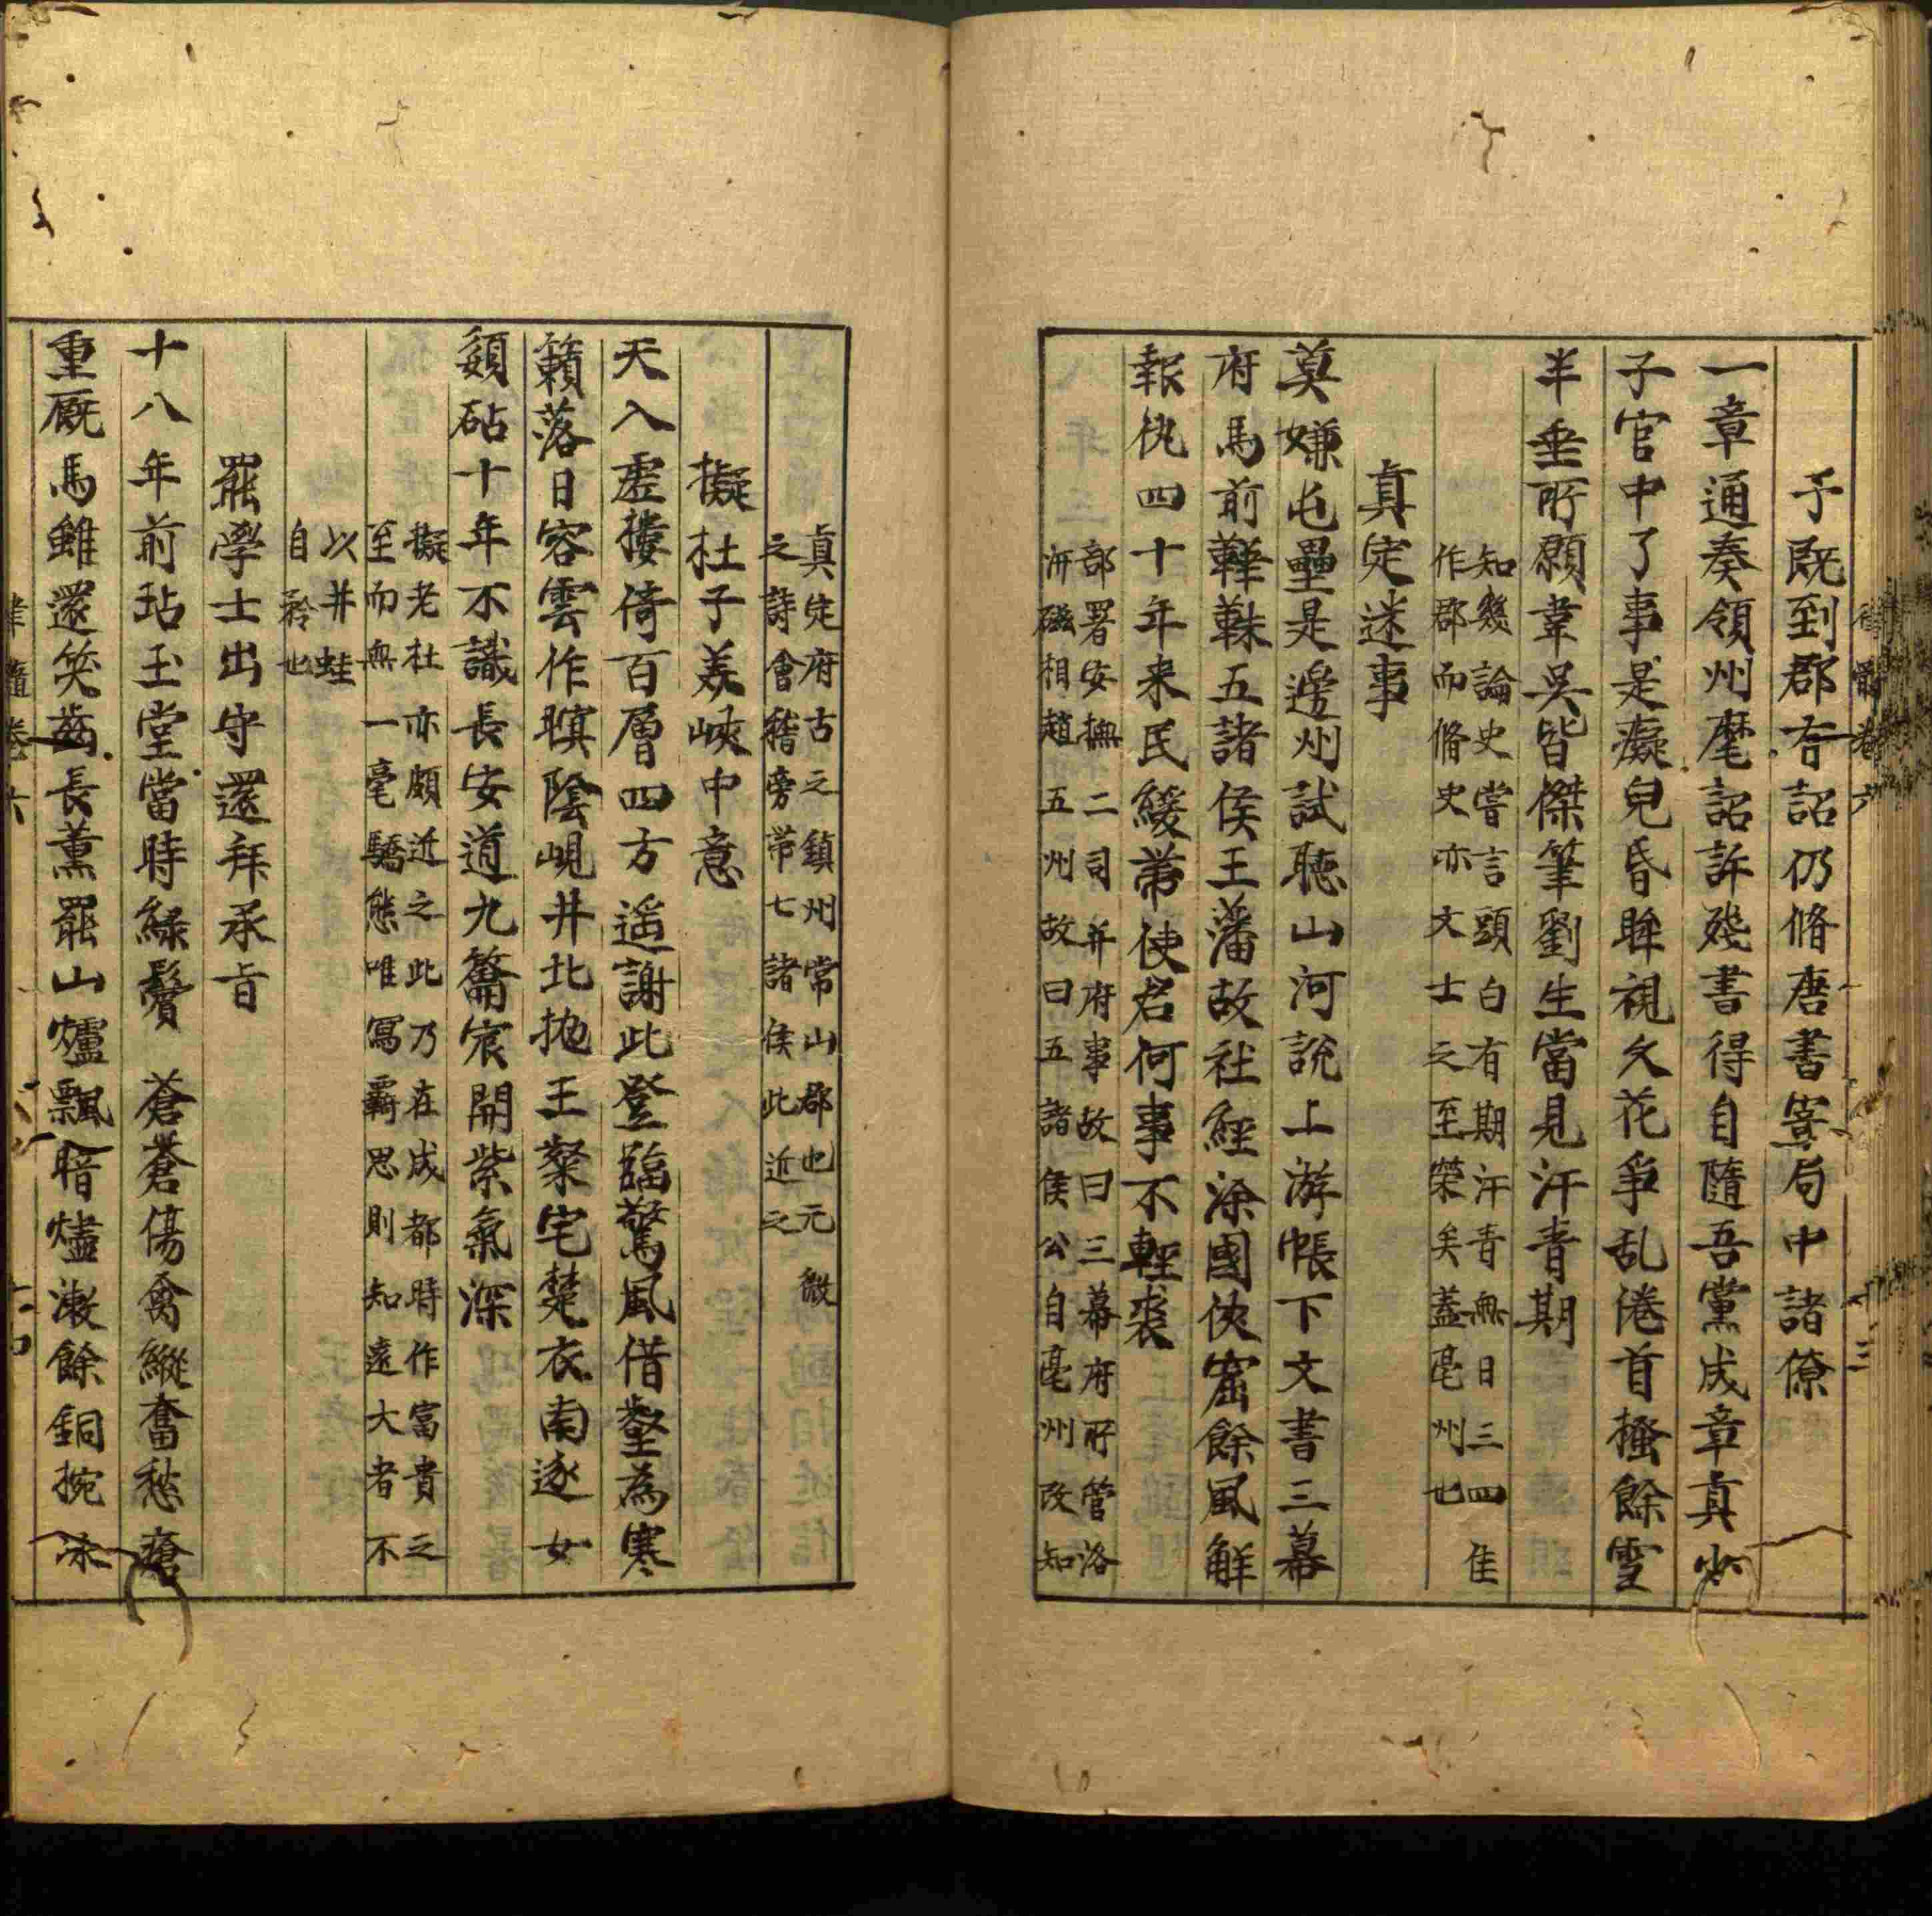 予既到郡有詔仍脩唐書寄局中諸僚
一章通奏領州麾詔許殘書得自隨吾黨成章真
子官中了事是癡兒昏眸視久花爭乱倦首搔餘雪
半垂所願韋吳皆傑筆劉生當見汗青期
知幾論史嘗言頭白有期汗青無日三四佳
作郡而脩史亦文士之至榮矣蓋亳州也
真定述事
莫嫌屯壘是邊州試聽山河說上游帳下文書三幕
府馬前鞾靺五諸侯王藩故社經涂國俠窟餘風解
報仇四十年来民緩帶使君何事不輕裘
部署安撫二司并府事故曰三幕府所管洺
磁相趙五州故曰五諸侯公自亳州改知
真定府古之鎮州常山郡也元微
之詩會稽旁帶七諸侯此近之
擬杜子美峽中意
天入虛樓倚百層四方遥謝此登臨驚風借壑為寒
籟落日容雲作暝陰峴井北抛王粲宅楚衣南逐女
嬃砧十年不識長安道九籥宸開紫氣深
擬老杜亦頗近之此乃在成都時作富貴之
至而無一毫驕態唯寫羈思則知遠大者不
以井蛙
自矜也
罷學士出守還拜承旨
十八年前玷玉堂當時綠鬢蒼蒼傷禽縱奮愁瘡
重厩馬雖還笑齒長薰罷山爐飄暗燼漱餘銅捥